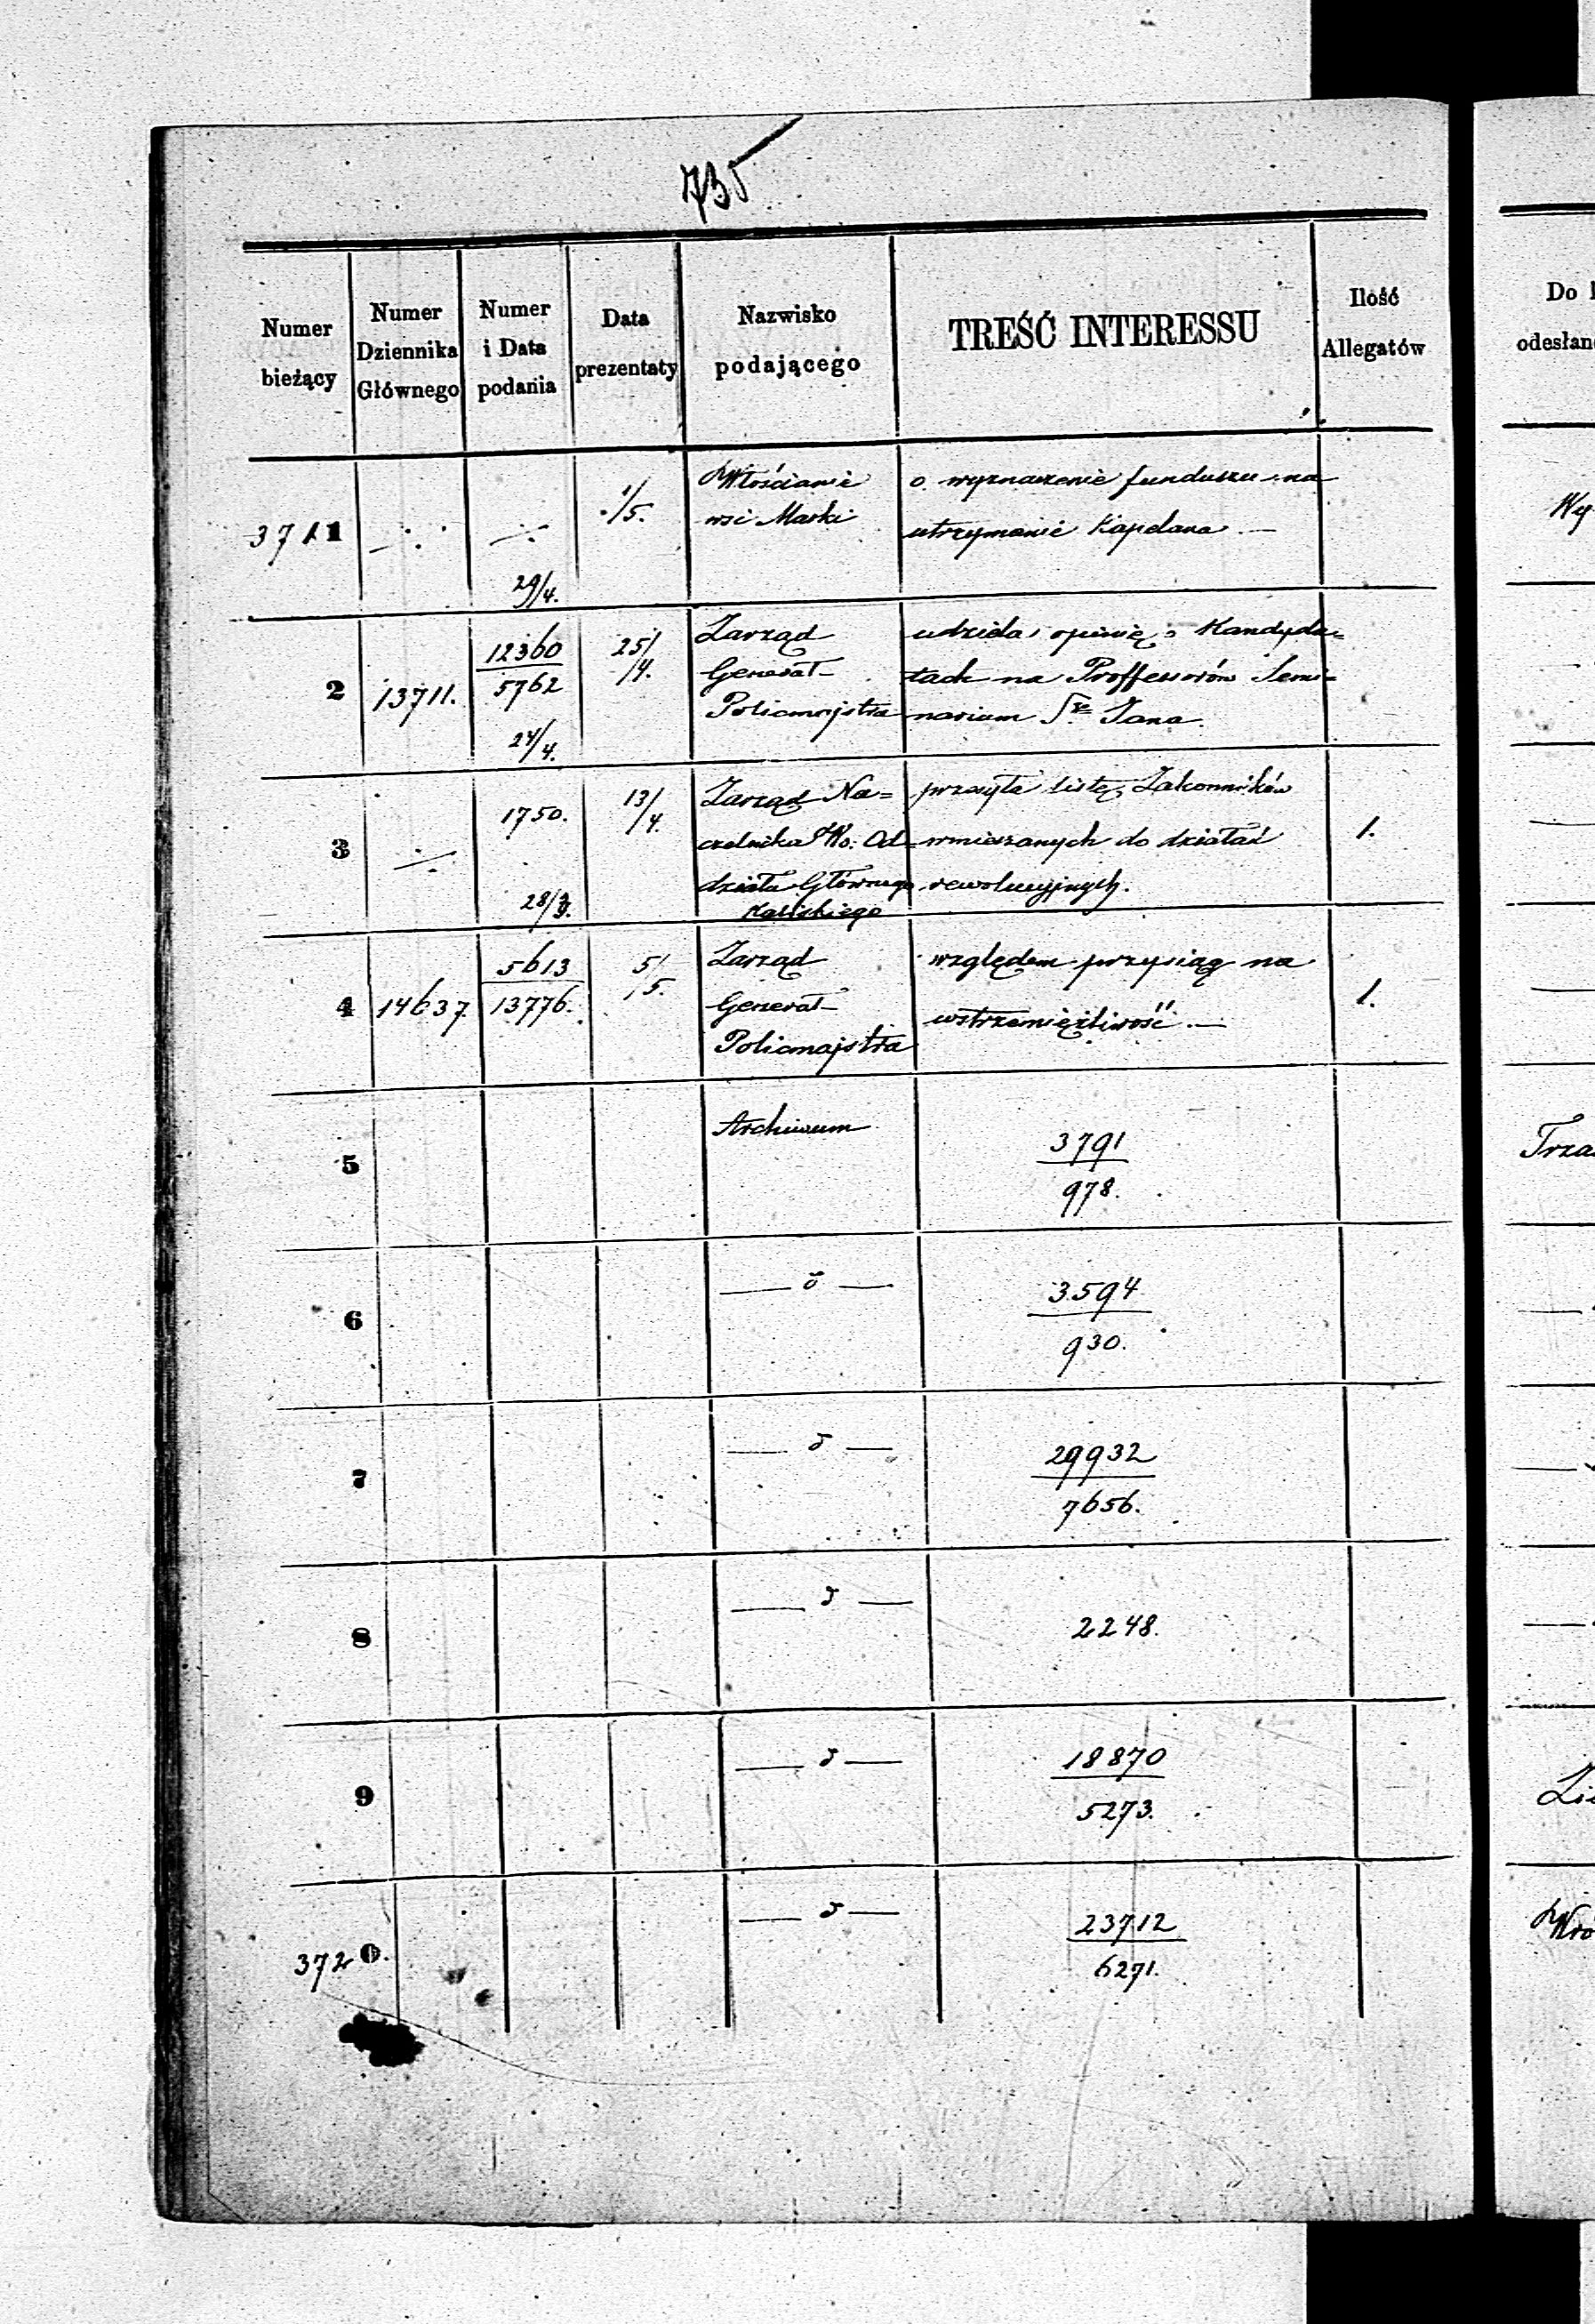 735
Numer bieżący
Numer Dziennika Głównego
Numer i Data podania
Data prezentaty
Nazwisko podającego
TREŚĆ INTERESSU
Ilość Allegatów
Do
odesłan
3711
1/5.
Włościanie
wsi Marki
o wyznaczenie funduszu na
utrzymanie Kapelana. —
Wy
29/4.
2
13711.
12360
5762
24/4.
25/4.
Zarząd
Generał-
Policmajstra
udziela opinię o Kandyda=
tach na Proffessorów Semi=
narium Sgo Jana.
3
1750.
28/3.
13/4.
Zarząd Na=
czelnika Wo: Od=
działu Głównego
Kaliskiego
przesyła listę Zakonników
wmieszanych do działań
rewolucyjnych.
1.
4
14637.
5613
13776.
5/5.
Zarząd
Generał-
Policmajstra
względem przysiąg na
wstrzemięźliwość. —
1.
5
Archiwum
3791
978.
Trza
6
— " —
3594
930.
7
— " —
29932
7656.
8
— " —
2248.
9
— " —
18870
5273.
Zie
3720.
— " —
23712
6271.